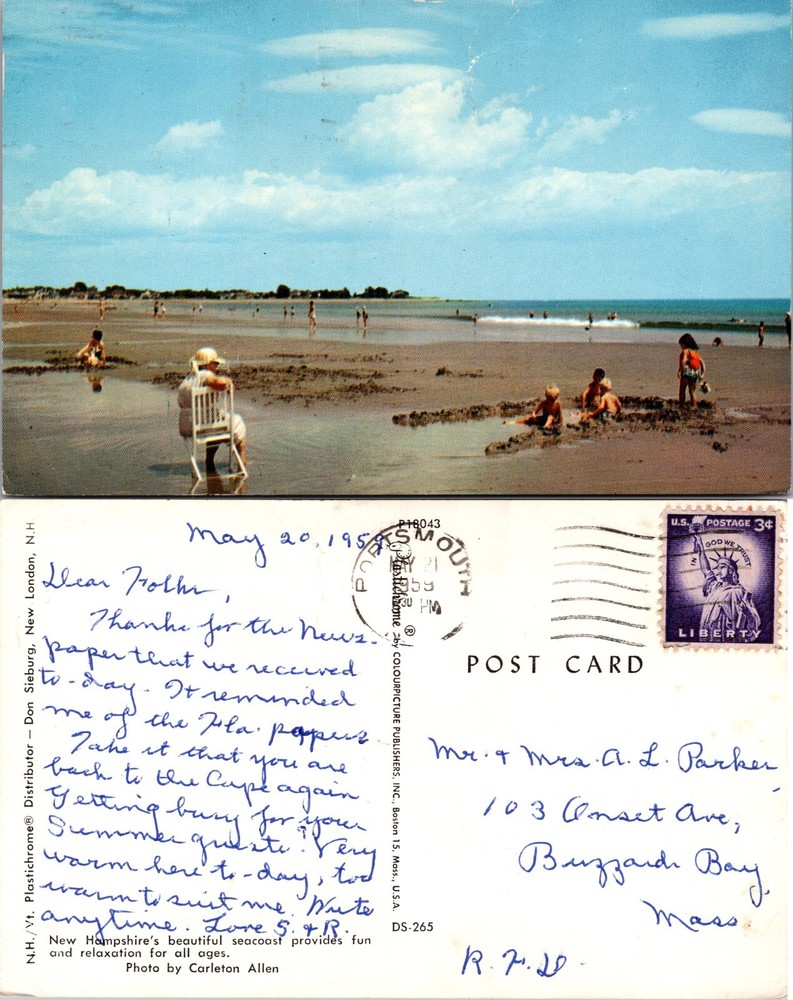 May 20, 1959
Dear Folks,
Thanks for the News-
paper that we received
to-day. It reminded
me of the Fla. papers.
Take it that you are
back to the Cape again
Getting busy for your
Summer guests? Very
warm here to-day, too
warm to suit me. Write
anytime. Love S. & R.
New Hampshire's beautiful seacoast provides fun
and relaxation for all ages.
Photo by Carleton Allen
N.H./Vt. Plastichrome® Distributor — Don Sieburg, New London, N.H
P18043
Plastichrome ® by COLOURPICTURE PUBLISHERS, INC., Boston 15, Mass., U.S.A.
DS-265
PORTSMOUTH
MAY 21
1959
30 PM
U.S. POSTAGE 3¢
IN GOD WE TRUST
LIBERTY
POST CARD
Mr. & Mrs. A. L. Parker,
103 Onset Ave,
Buzzards Bay,
Mass.
R.F.D.